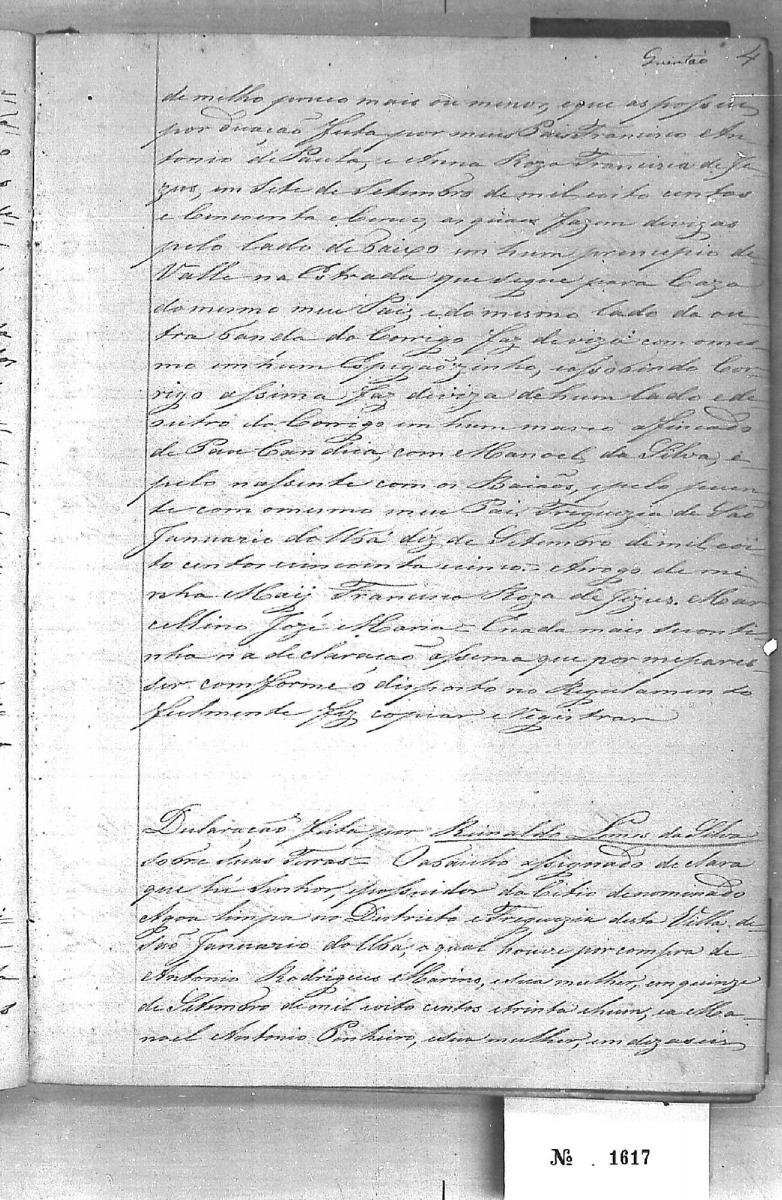 Quintão 4
de milho pouco mais ou menos, e que as possue
por duação feita por meus Pais Francisco An-
tonio de Paula, e Anna Roza Francisca de Je-
zus, em Sete de Setembro de mil oito centos
e Cincoenta e Cinco, as quais fazem devizas
pelo lado de baixo em hum principio de
Valle na Estrada que segue para Caza
do mesmo meu Paiz e do mesmo lado da ou-
tra banda do Corrigo faz deviza com o mes-
mo em hum Espigaozinho, e assobindo Cor-
rigo assima faz deviza de hum lado e de
outro do Corrigo em hum marco afincado
de Pau Candeia, com Manoel da Silva, e
pelo nassente com os Baiaõs, e pelo puen-
te com o mesmo meu Pai Freguezia de Saõ
Januario do Ubá déz de Setembro de mil oi-
to centos cincoenta e cinco = Arogo de mi-
nha Maij Francisca Roza de Jezus. Mar-
cellino Jozé Maria = E nada mais se conti-
nha na declaração assima que por me pares-
ser comforme o disposto no Regulamento
fielmente fiz copiar e registrar
Declaração feita por Reinaldo Lemes da Silva
sobre suas Terras = O abaicho assignado declara
que hé Senhor, possuidor do Citio denominado
Agoa limpa no Districto e Freguezia desta Villa de
Saõ Januario do Ubá, o qual houve por compra de
Antonio Rodrigues Marins, e sua mulher, em quinze
de Setembro de mil oito centos e trinta e hum, e a Ma-
noel Antonio Pinheiro, e sua mulher, em dezaseis
Nº . 1617